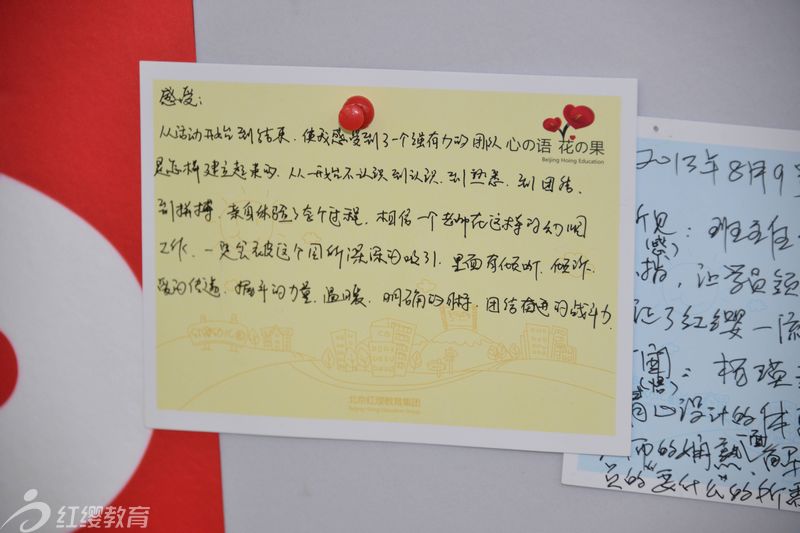 感受：
从活动开始到结束，使我感受到了一个强有力的团队
是怎样建立起来的，从一开始不认识到认识，到熟悉，到团结，
到拼搏，亲自体验了全个过程，相信一个老师在这样的幼儿园
工作，一定会被这个园所深深的吸引，里面有倾听，倾诉，
爱的传递，奋斗的力量，温暖，明确的目标，团结奋进的战斗力
心の语 花の果
Beijing Hoing Education
北京红缨教育集团
Beijing Hoing Education Group
2013年8月9
见（感）：班主任
指，让学员领
了红缨一流
（悟）：杨瑛
设计的体
的娴熟
员的“要什么”的
红缨教育